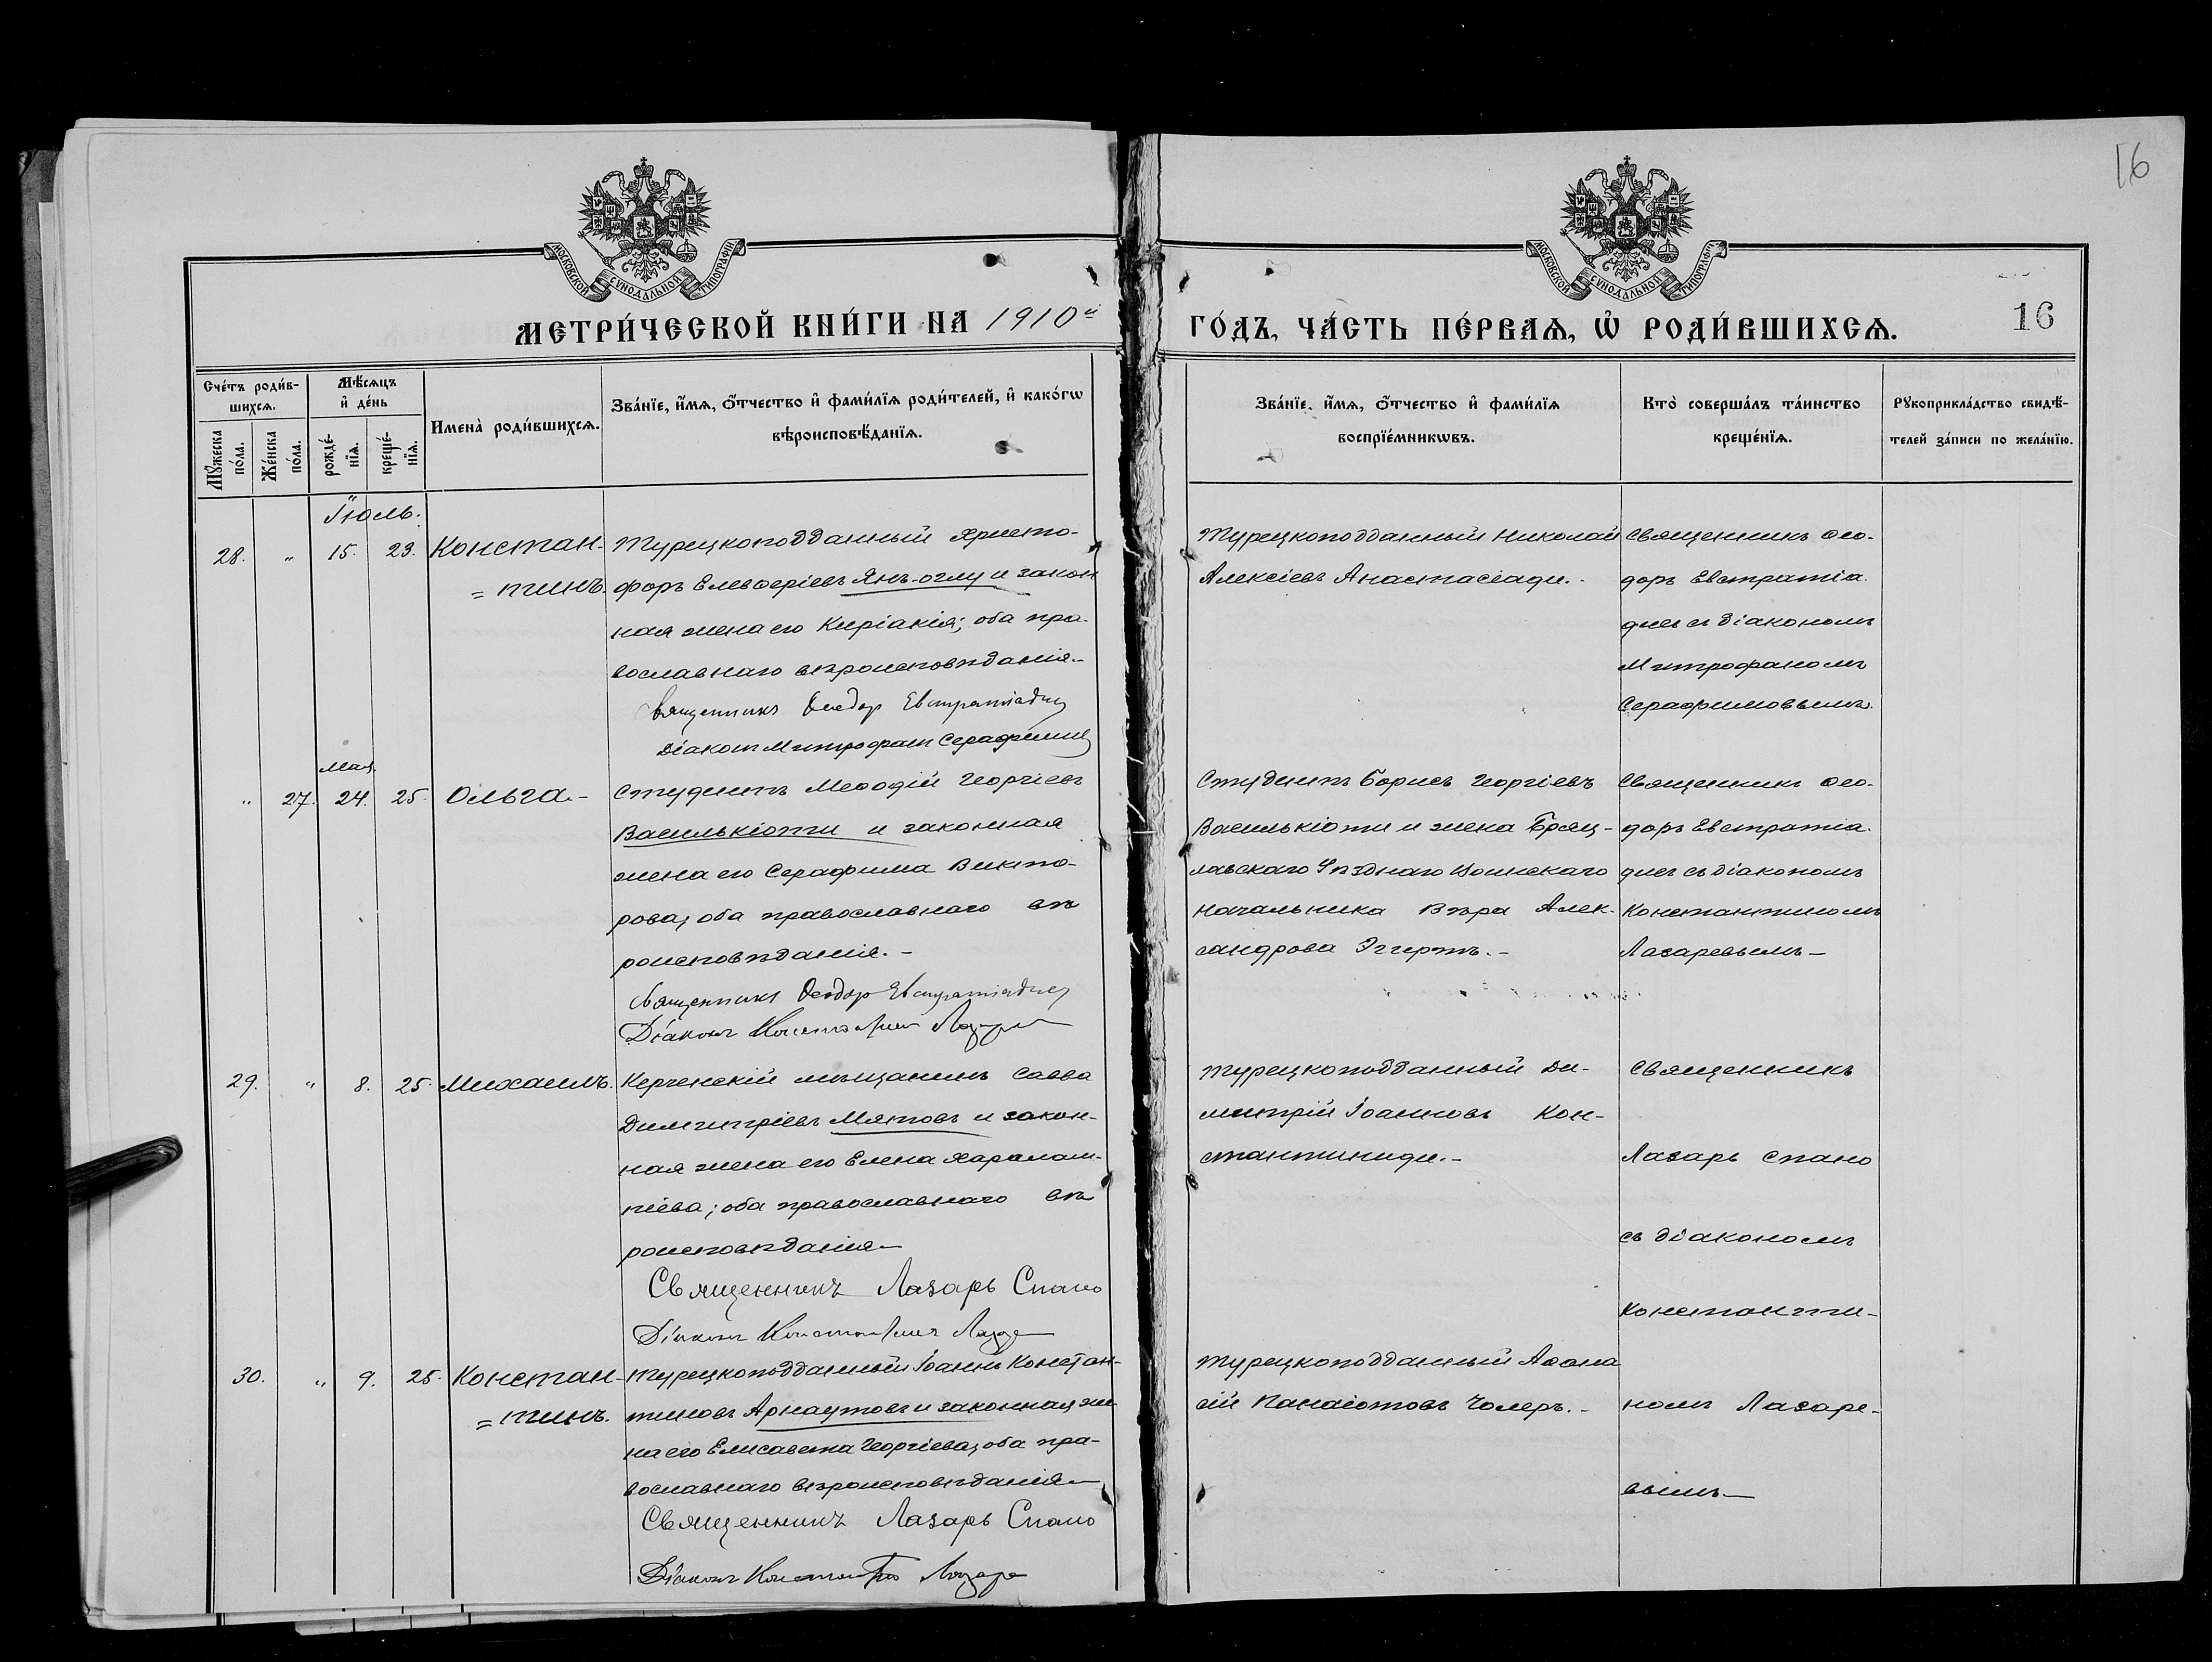 16
МОСКОВСКОЙ СѴНОДАЛЬНОЙ ТИПОГРАФІИ
МОСКОВСКОЙ СѴНОДАЛЬНОЙ ТИПОГРАФІИ
МЕТРИ́ЧЕСКОЙ КНИ́ГИ НА 1910й
ГО́ДЪ, ЧА́СТЬ ПЕ́РВАѦ, Ѡ҆ РОДИ́ВШИХСѦ.
16
Сче́тъ роди́в-
шихсѧ.
Мѣ́сѧцъ
и҆ де́нь
Имена̀ роди́вшихсѧ.
Зва́нїе, и҆́мѧ, ѻ҆́тчество и҆ фами́лїѧ роди́телей, и҆ како́гѡ
вѣроисповѣ́данїѧ.
Мꙋ́жеска
по́ла.
Же́нска
по́ла.
рожде́-
нїѧ.
креще́-
нїѧ.
Зва́нїе, и҆́мѧ, ѻ҆́тчество и҆ фами́лїѧ
воспрїе́мникѡвъ.
Кто̀ соверша́лъ та́инство
креще́нїѧ.
Рꙋкоприкла́дство свидѣ́-
телей за́писи по жела́нїю.
Іюль.
28. " 15. 23. Констан-
= тинъ.
Турецкоподданный Христо-
форъ Елевѳеріевъ Янъ-оглу и закон
ная жена его Киріакія; оба пра-
вославнаго вѣроисповѣданія.-
Священникъ Ѳеодор Евстратіадис
Діакон Митрофан Серафимов
Турецкоподданный Николай
Алексіевъ Анастасіади.-
Священникъ Ѳео-
доръ Евстратіа-
дисъ съ діакономъ
Митрофаномъ
Серафимовымъ.
Мая.
" 27. 24. 25. Ольга.-
Студентъ Меѳодій Георгіевъ
Василькіоти и законная
жена его Серафима Викто-
рова; оба православнаго вѣ
роисповѣданія.-
Священникъ Ѳеодор Евстратіадис
Діаконъ Константин Лазарев
Студентъ Борисъ Георгіевъ
Василькіоти и жена Брац-
лавскаго Уѣзднаго Воинскаго
Начальника Вѣра Алек-
сандрова Эггертъ.-
Священникъ Ѳео-
доръ Евстратіа-
дисъ съ діакономъ
Константиномъ
Лазаревымъ-
29. " 8. 25. Михаилъ.
Керченскій мѣщанинъ Савва
Димитріевъ Мятовъ и закон-
ная жена его Елена Харалам-
піева; оба православнаго вѣ
роисповѣданія-
Священникъ Лазарь Спано
Діаконъ Константинъ Лазарев
Турецкоподданный Ди-
митрій Іоанновъ Кон-
стантиниди.-
Священникъ
Лазарь Спано
съ діакономъ
Константи-
номъ Лазаре-
вымъ-
30. " 9. 25. Констан-
= тинъ.
Турецкоподданный Іоаннъ Констан-
тиновъ Арнаутовъ и законная же
на его Елисавета Георгіева; оба пра-
вославнаго вѣроисповѣданія-
Священникъ Лазарь Спано
Діаконъ Константин Лазарев
Турецкоподданный Аѳана
сій Панаіотовъ Чолеръ.-